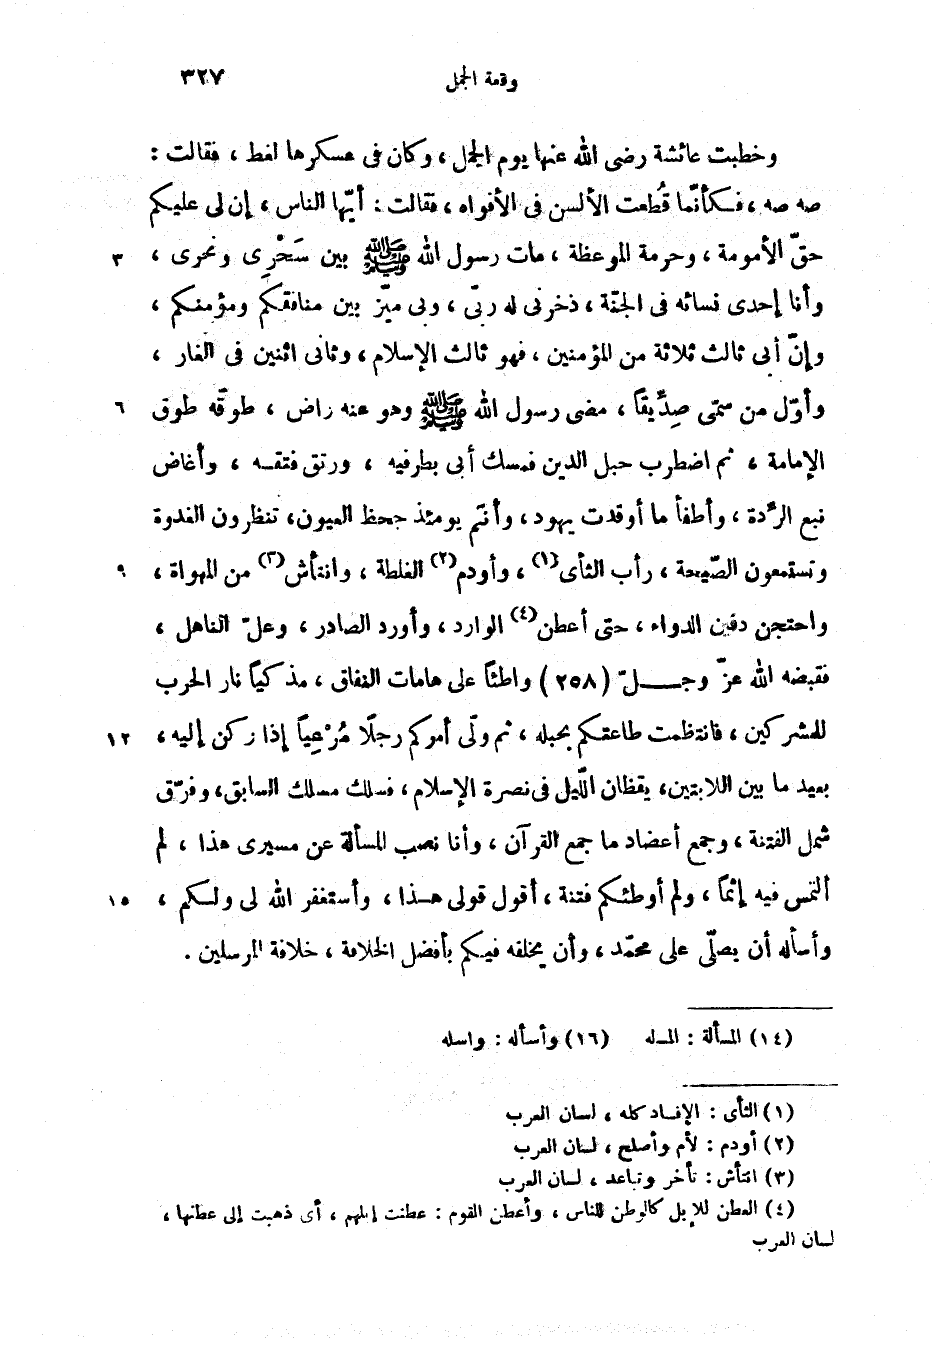 وقعة الجمل ٣٢٧
وخطبت عائشة رضى الله عنها يوم الجمل ، وكان فى عسكرها لغط ، فقالت :
صه صه ، فكأنّما قُطعت الألسن فى الأفواه ، فقالت : أيّها الناس ، إن لى عليكم
حقّ الأمومة ، وحرمة الموعظة ، مات رسول الله ﷺ بين سَحْرِى ونحرى ، ٣
وأنا إحدى نسائه فى الجنّة ، ذخرنى له ربّى ، وبى ميّز بين منافقكم ومؤمنكم ،
وإنّ أبى ثالث ثلاثة من المؤمنين ، فهو ثالث الإسلام ، وثانى اثنين فى الغار ،
وأوّل من سمّى صِدِّيقاً ، مضى رسول الله ﷺ وهو عنه راض ، طوقّه طوق ٦
الإمامة ، ثم اضطرب حبل الدين فمسك أبى بطرفيه ، ورتق فتقه ، وأغاض
نبع الرِّدة ، وأطفأ ما أوقدت يهود ، وأنتم يومئذ جحظ العيون، تنظرون الغدوة
وتستمعون الصّيحة ، رأب الثأى(١) ، وأودم(٢) الغلطة ، وانتأش(٣) من المهواة ، ٩
واحتجن دفين الدواء ، حتى أعطن(٤) الوارد ، وأورد الصادر ، وعلّ الناهل ،
فقبضه الله عزّ وجلّ (٢٥٨) واطئاً على هامات النفاق ، مذكياً نار الحرب
للمشركين ، فانتظمت طاعتكم بحبله ، ثم ولّى أموركم رجلًا مُرْعِياً إذا ركن إليه، ١٢
بعيد ما بين اللابتين، يقظان اللّيل فى نصرة الإسلام ، فسلك مسلك السابق، وفرّق
شمل الفتنة ، وجمع أعضاد ما جمع القرآن ، وأنا نصب المسألة عن مسيرى هذا ، لم
ألتمس فيه إثمًا ، ولم أوطئكم فتنة ، أقول قولى هذا ، وأستغفر الله لى ولكم ، ١٥
وأسأله أن يصلّى على محمّد ، وأن يخلفه فيكم بأفضل الخلافة ، خلافة المرسلين .
(١٤) المسألة : المسله (١٦) وأسأله : واسله
(١) الثأى : الإفساد كله ، لسان العرب
(٢) أودم : لأم وأصلح ، لسان العرب
(٣) انتأش : تأخر وتباعد ، لسان العرب
(٤) العطن للإبل كالوطن للناس ، وأعطن القوم : عطنت إبلهم ، أى ذهبت إلى عطنها ،
لسان العرب